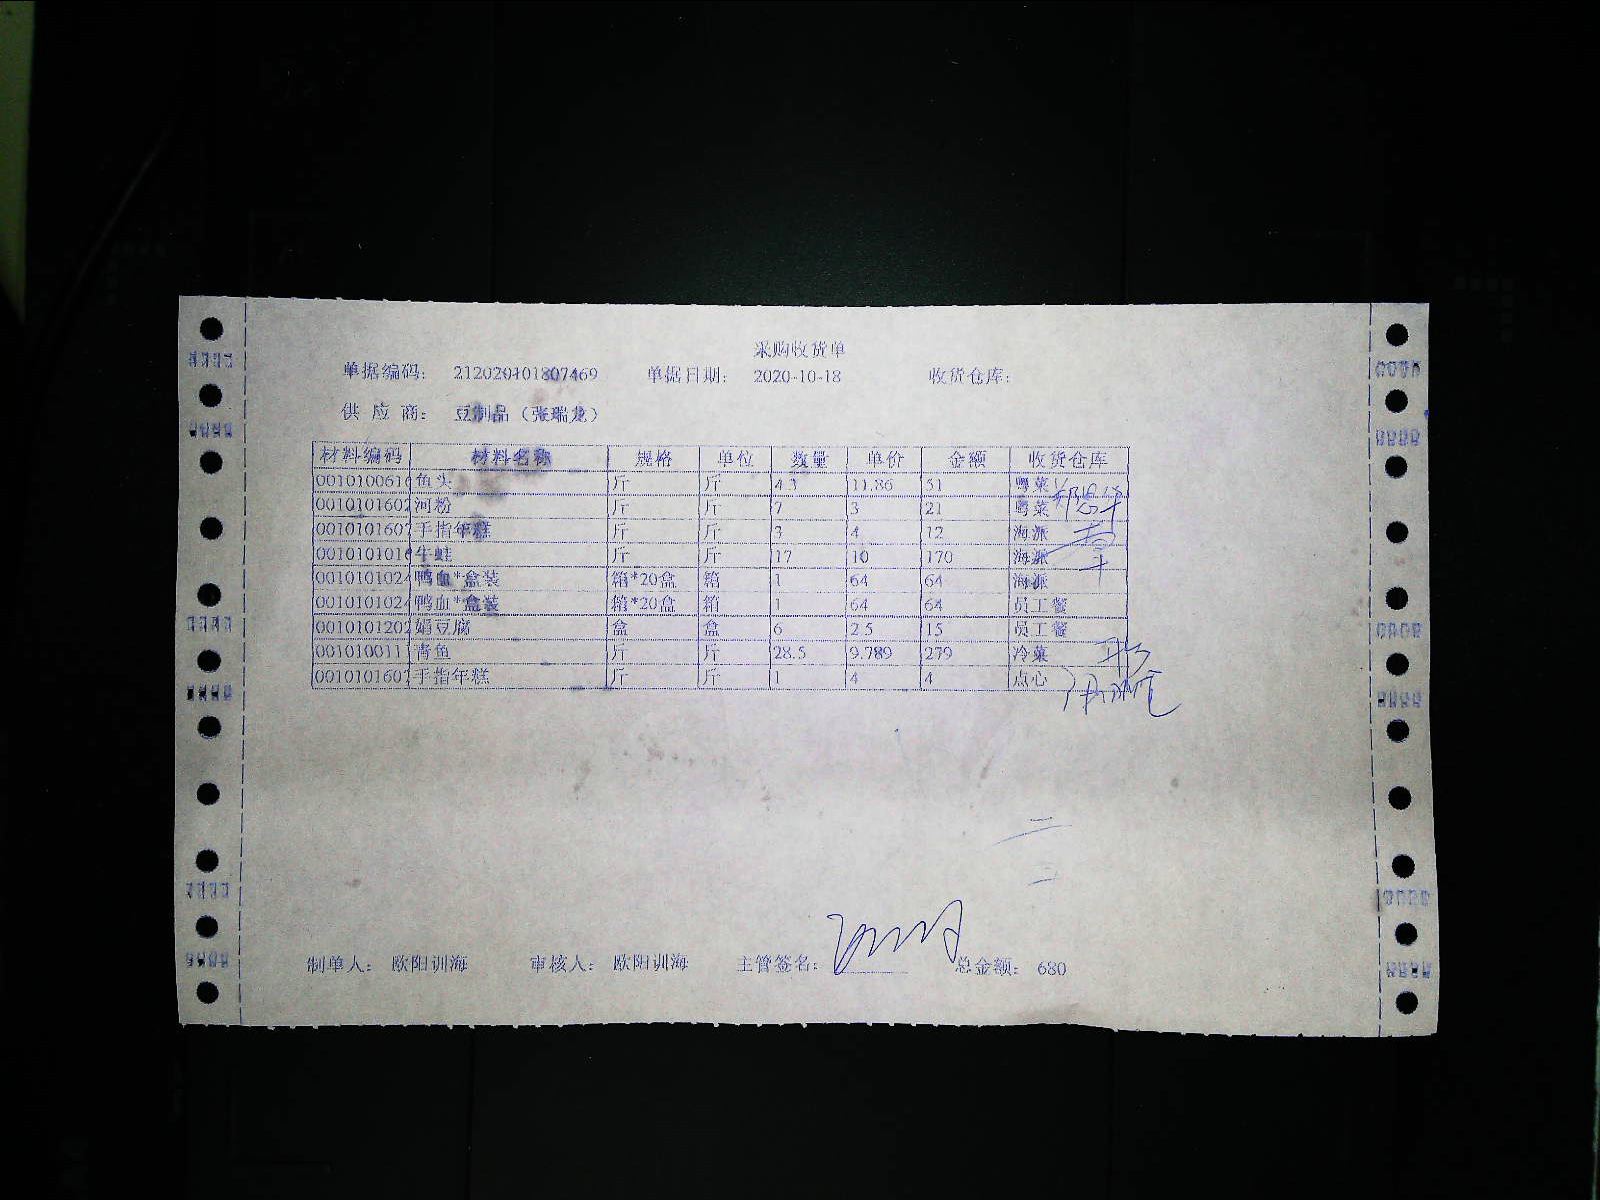 采购收货单
单据编码： 212020101807469 单据日期： 2020-10-18 收货仓库：
供 应 商： 豆制品（张瑞龙）
材料编码 材料名称 规格 单位 数量 单价 金额 收货仓库
0010100616 鱼头 斤 斤 4.3 11.86 51 粤菜
0010101602 河粉 斤 斤 7 3 21 粤菜
0010101607 手指年糕 斤 斤 3 4 12 海派
0010101016 牛蛙 斤 斤 17 10 170 海派
0010101024 鸭血*盒装 箱*20盒 箱 1 64 64 海派
0010101024 鸭血*盒装 箱*20盒 箱 1 64 64 员工餐
0010101202 娟豆腐 盒 盒 6 2.5 15 员工餐
001010011 青鱼 斤 斤 28.5 9.789 279 冷菜
0010101607 手指年糕 斤 斤 1 4 4 点心
制单人： 欧阳训海 审核人： 欧阳训海 主管签名： 总金额： 680